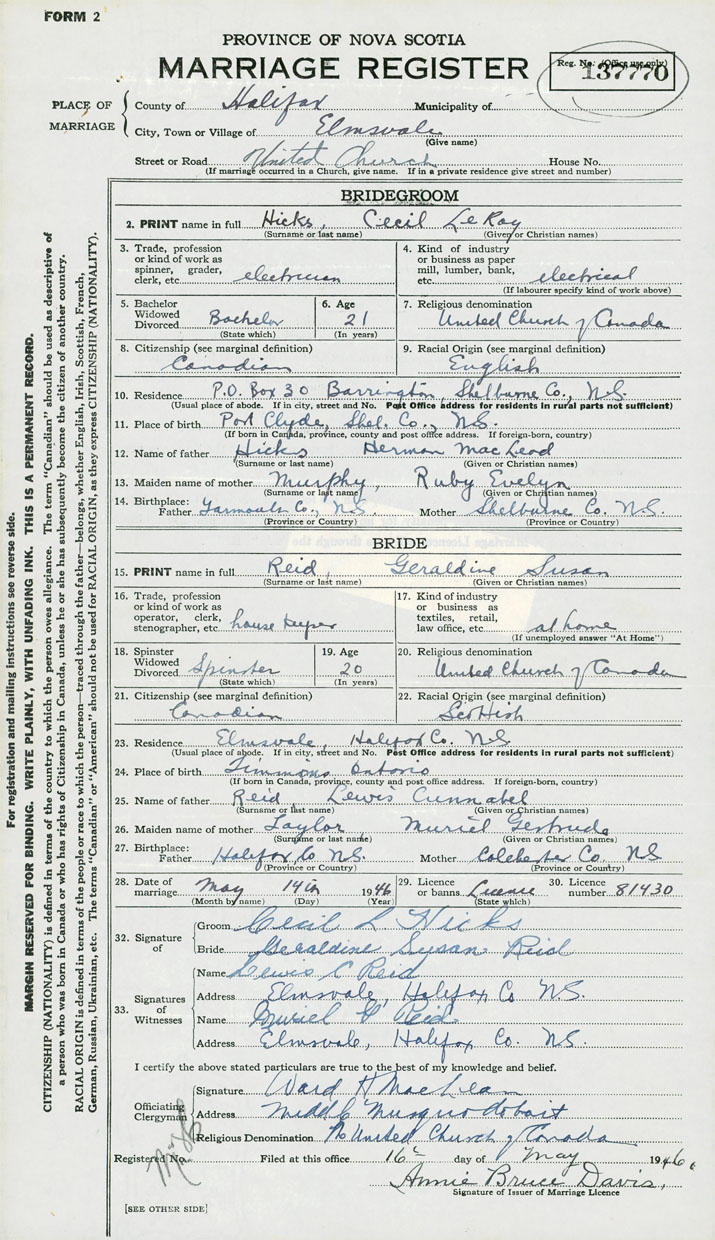 FORM 2
PROVINCE OF NOVA SCOTIA
MARRIAGE REGISTER
Reg. No. (Office use only)
137770
PLACE OF MARRIAGE
County of Halifax Municipality of
City, Town or Village of Elmsvale
(Give name)
Street or Road United Church House No.
(If marriage occurred in a Church, give name. If in a private residence give street and number)
BRIDEGROOM
2. PRINT name in full Hicks, Cecil LeRoy
(Surname or last name) (Given or Christian names)
3. Trade, profession or kind of work as spinner, grader, clerk, etc. electrician
4. Kind of industry or business as paper mill, lumber, bank, etc. electrical
(If labourer specify kind of work above)
5. Bachelor Widowed Divorced Bachelor
(State which)
6. Age 21
(In years)
7. Religious denomination
United Church of Canada
8. Citizenship (see marginal definition)
Canadian
9. Racial Origin (see marginal definition)
English
10. Residence P.O. Box 30 Barrington, Shelburne Co., N.S.
(Usual place of abode. If in city, street and No. Post Office address for residents in rural parts not sufficient)
11. Place of birth Port Clyde, Shel. Co., N.S.
(If born in Canada, province, county and post office address. If foreign-born, country)
12. Name of father Hicks Herman MacLeod
(Surname or last name) (Given or Christian names)
13. Maiden name of mother Murphy, Ruby Evelyn
(Surname or last name) (Given or Christian names)
14. Birthplace: Father Yarmouth Co., N.S. Mother Shelburne Co. N.S.
(Province or Country) (Province or Country)
BRIDE
15. PRINT name in full Reid, Geraldine Susan
(Surname or last name) (Given or Christian names)
16. Trade, profession or kind of work as operator, clerk, stenographer, etc. house keeper
17. Kind of industry or business as textiles, retail, law office, etc. at home
(If unemployed answer "At Home")
18. Spinster Widowed Divorced Spinster
(State which)
19. Age 20
(In years)
20. Religious denomination
United Church of Canada
21. Citizenship (see marginal definition)
Canadian
22. Racial Origin (see marginal definition)
Scottish
23. Residence Elmsvale, Halifax Co. N.S
(Usual place of abode. If in city, street and No. Post Office address for residents in rural parts not sufficient)
24. Place of birth Timmons Ontario
(If born in Canada, province, county and post office address. If foreign-born, country)
25. Name of father Reid, Lewis Cunnabel
(Surname or last name) (Given or Christian names)
26. Maiden name of mother Taylor Muriel Gertrude
(Surname or last name) (Given or Christian names)
27. Birthplace: Father Halifax Co N.S. Mother Colchester Co. N.S
(Province or Country) (Province or Country)
28. Date of marriage May 14th 1946
(Month by name) (Day) (Year)
29. Licence or banns License
(State which)
30. Licence number 81430
32. Signature of
Groom Cecil L Hicks
Bride Geraldine Susan Reid
33. Signatures of Witnesses
Name Lewis C Reid
Address Elmsvale, Halifax Co N.S.
Name Muriel G Reid
Address Elmsvale, Halifax Co. N.S.
I certify the above stated particulars are true to the best of my knowledge and belief.
Officiating Clergyman
Signature Ward H MacLean
Address Middle Musquodoboit
Religious Denomination The United Church of Canada
Registered No. Filed at this office 16th day of May 1946.
Annie Bruce Davis,
Signature of Issuer of Marriage Licence
[SEE OTHER SIDE]
For registration and mailing instructions see reverse side.
MARGIN RESERVED FOR BINDING. WRITE PLAINLY, WITH UNFADING INK. THIS IS A PERMANENT RECORD.
CITIZENSHIP (NATIONALITY) is defined in terms of the country to which the person owes allegiance. The term "Canadian" should be used as descriptive of
a person who was born in Canada or who has rights of Citizenship in Canada, unless he or she has subsequently become the citizen of another country.
RACIAL ORIGIN is defined in terms of the people or race to which the person—traced through the father—belongs, whether English, Irish, Scottish, French,
German, Russian, Ukrainian, etc. The terms "Canadian" or "American" should not be used for RACIAL ORIGIN, as they express CITIZENSHIP (NATIONALITY).